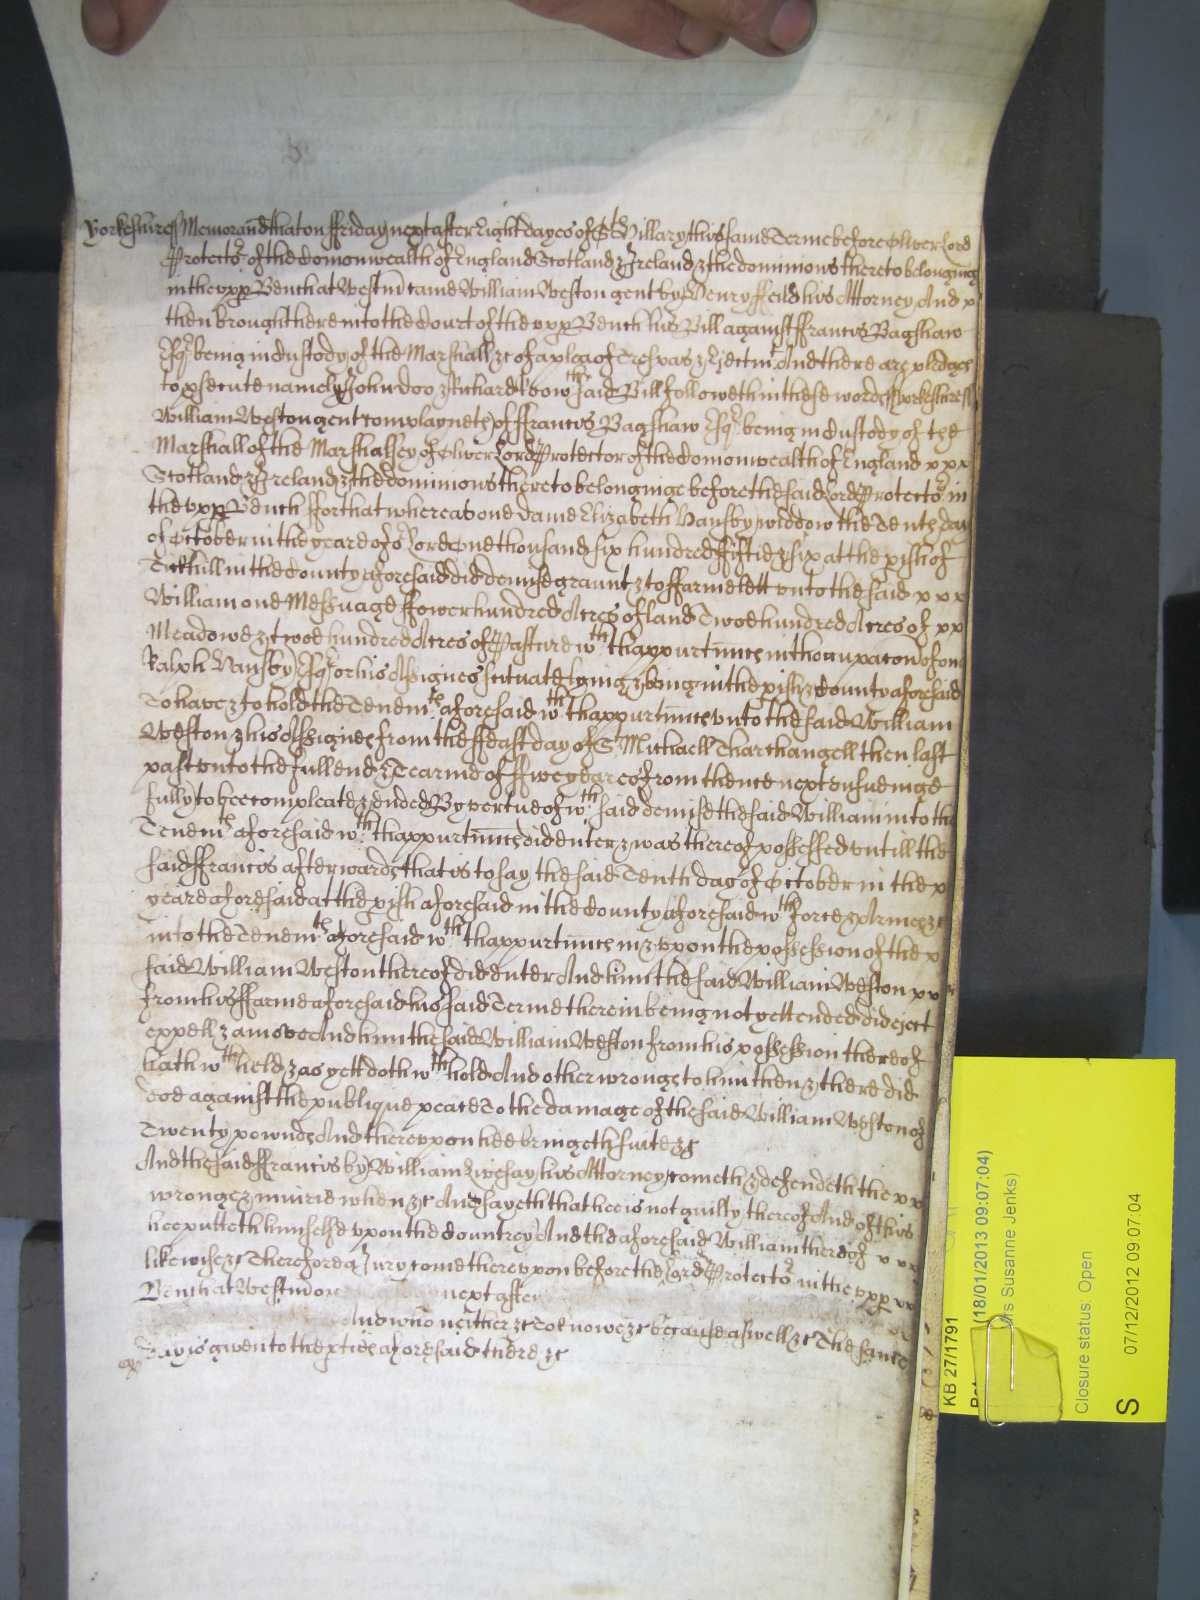 Yorkshire ss Memorand that on ffriday next after Eight dayes of St Hillary this same Terme before Oliver Lord
Protector of the Comonwealth of England Scotland & Ireland & the dominions thereto belonging
in the upp Bench at Westm came William Weston gent by Henry ffeild his Attorney And x
then brought here into the Court of the upp Bench his Bill against ffrancis Bagshaw
Esqr being in Custody of the Marshall &c of a plea of Trespas & Ejectmt And there are pledges
to psecute namely John Doo & Richard Roo wth said Bill followeth in these words ss Yorkshire ss
William Weston gent complayneth of ffrancis Bagshaw Esqr being in Custody of the
Marshall of the Marshalsey of Oliver Lord Protector of the Comonwealth of England x x x
Scotland & Ireland & the dominions thereto belonginge before the said Lord Protector in
the upp Bench ffor that whereas one dame Elizabeth Vansby widdow the Tenth day
of October in the yeare of or Lord One thousand six hundred ffiftie & six at the pish of
Tickhill in the County aforesaid did demise graunt & to ffarme lett unto the said x x x
William one Messuage ffower hundred Acres of land Twoe hundred Acres of x x
Meadowe & twoe hundred Acres of Pasture wth thappurtnnces in thoccupacon of one
Ralph Vansby Esqr or his Assignes scituate lying & being in the pish & County aforesaid
To have & to hold the Tenemts aforesaid wth thappurtnnces unto the said William
Weston & his Assignes from the ffeast day of St Michaell Tharchangell then last
past unto the full end & Tearme of ffive yeares from thence next ensueinge
fully to bee compleate & ended By vertue of wch said demise the said William into the
Tenemts aforesaid wth thappurtnnces did enter & was thereof possessed untill the
said ffrancis afterwards that is to say the said Tenth day of October in the x
yeare aforesaid at the pish aforesaid in the County aforesaid wth force & Armes &c
into the Tenemts aforesaid wth thappurtnnces in & upon the possession of the x
said William Weston thereof did enter And him the said William Weston x x
from his ffarme aforesaid his said Terme therein being not yett ended did eject
expell & amove And him the said William Weston from his possession thereof
hath wth held & as yett doth wth hold And other wrongs to him then & there did
doe against the publique peace To the damage of the said William Weston of
Twenty pownds And thereupon hee bringeth suite &c
And the said ffrancis by William Livesay his Attorney cometh & defendeth the x x
wronge & iniurie when &c And sayeth that hee is not guilty thereof And of this
hee putteth himselfe upon the Countrey And the aforesaid William thereof x x x
likewise &c Therefore a Jury come thereupon before the Lord Protector in the upp x x
Bench at Westm on next after
And who neither &c to know &c because aswell &c The same
day is given to the pties aforesaid there &c
KB 27/1791
(18/01/2013 09:07:04)
rs Susanne Jenks)
Closure status: Open
S 07/12/2012 09:07:04